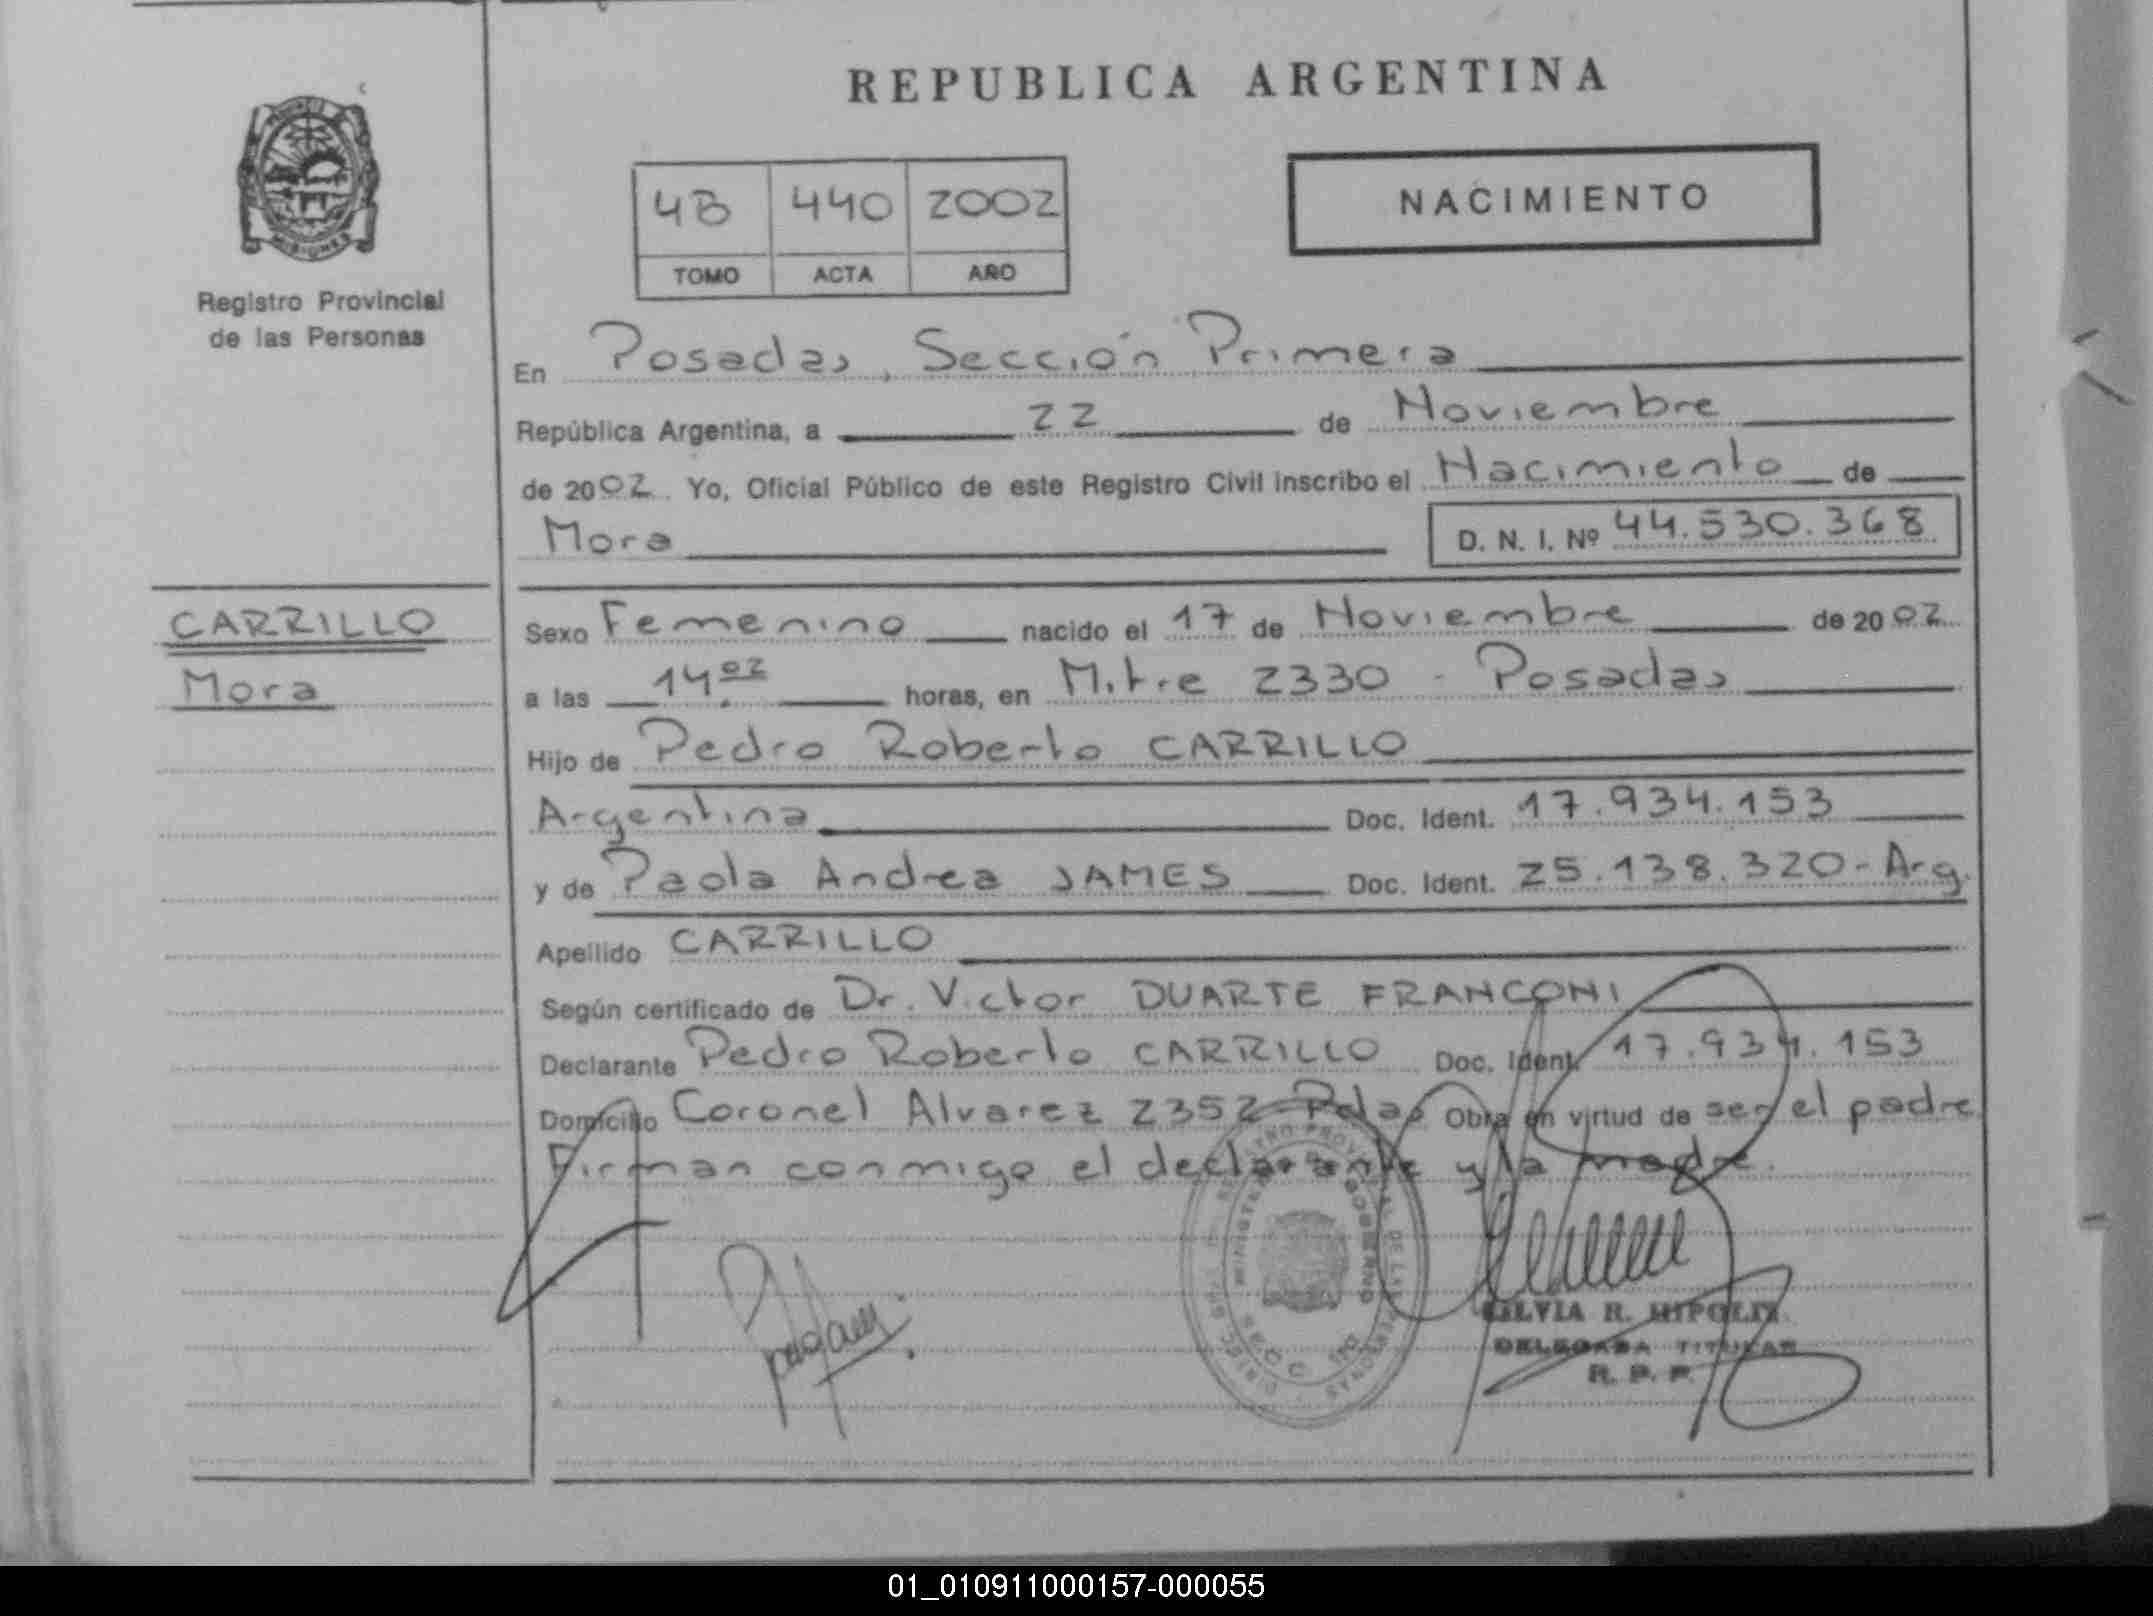 REPUBLICA ARGENTINA
4B 440 2002
TOMO ACTA AÑO
NACIMIENTO
MISIONES
Registro Provincial
de las Personas
En Posadas, Sección Primera
República Argentina, a 22 de Noviembre
de 2002. Yo, Oficial Público de este Registro Civil inscribo el Nacimiento de
Mora D. N. I. Nº 44.530.368
CARRILLO
Mora
Sexo Femenino nacido el 17 de Noviembre de 2002
a las 14 02 horas, en Mitre 2330 - Posadas
Hijo de Pedro Roberto CARRILLO
Argentina Doc. Ident. 17.934.153
y de Paola Andrea JAMES Doc. Ident. 25.138.320 - Arg.
Apellido CARRILLO
Según certificado de Dr. Victor DUARTE FRANCONI
Declarante Pedro Roberto CARRILLO Doc. Ident. 17.934.153
Domicilio Coronel Alvarez 2352 Pdas Obra en virtud de ser el padre
Firman conmigo el declarante y la madre.
SILVIA R.
DELEGADA TITULAR
R. P. P.
01_010911000157-000055